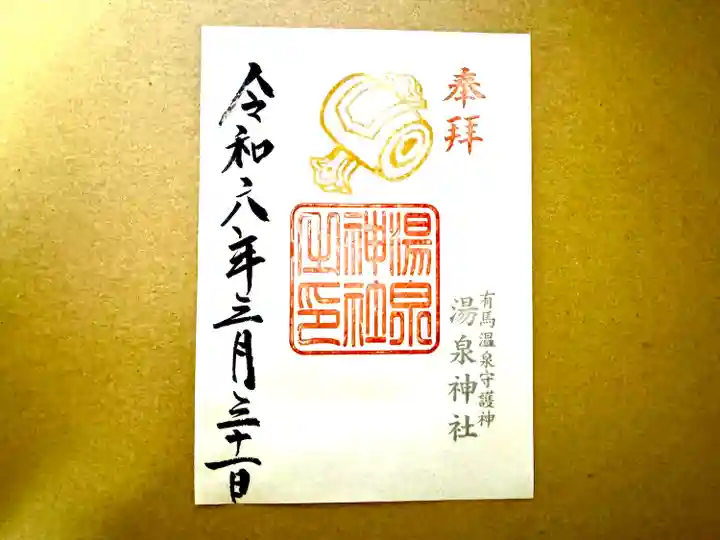 奉拝
有馬温泉守護神
湯泉神社
湯泉
神社
之印
令和六年三月三十一日